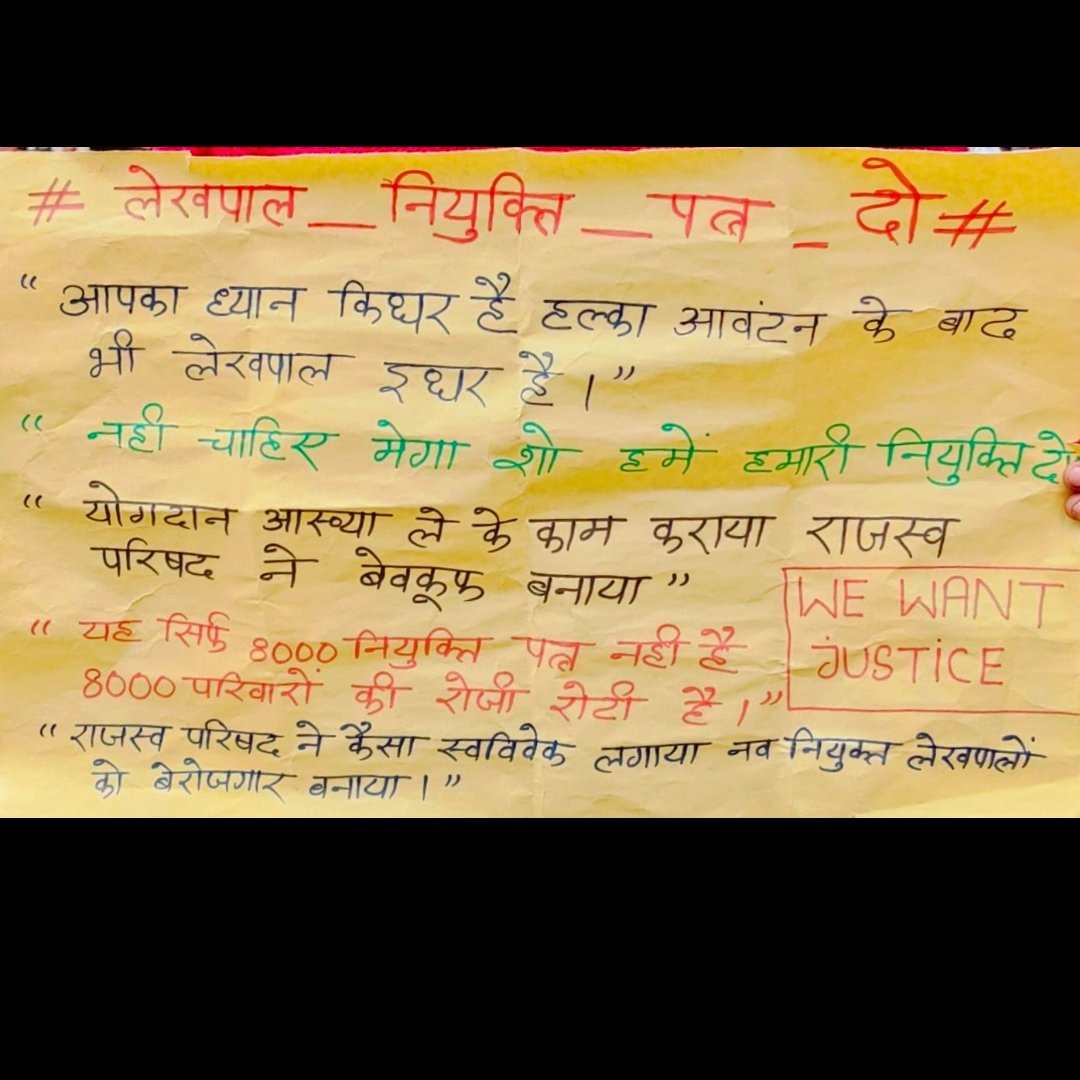 # लेखपाल _ नियुक्ति _ पत्र _ दो #
“ आपका ध्यान किधर है हल्का आवंटन के बाद
भी लेखपाल इधर है ।”
“ नही चाहिए मेगा शो हमें हमारी नियुक्ति दो
“ योगदान आख्या ले के काम कराया राजस्व
परिषद ने बेवकूफ बनाया ”
WE WANT
JUSTICE
“ यह सिर्फ 8000 नियुक्ति पत्र नही है
8000 परिवारों की रोजी रोटी है ।”
“ राजस्व परिषद ने कैसा स्वविवेक लगाया नव नियुक्त लेखपालों
को बेरोजगार बनाया ।”